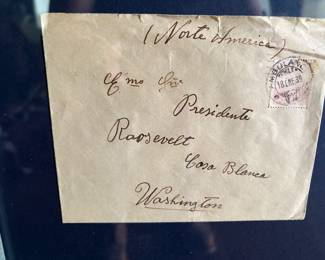 (Norte America)
Exmo Sr.
Presidente
Roosevelt
Casa Blanca
Washington